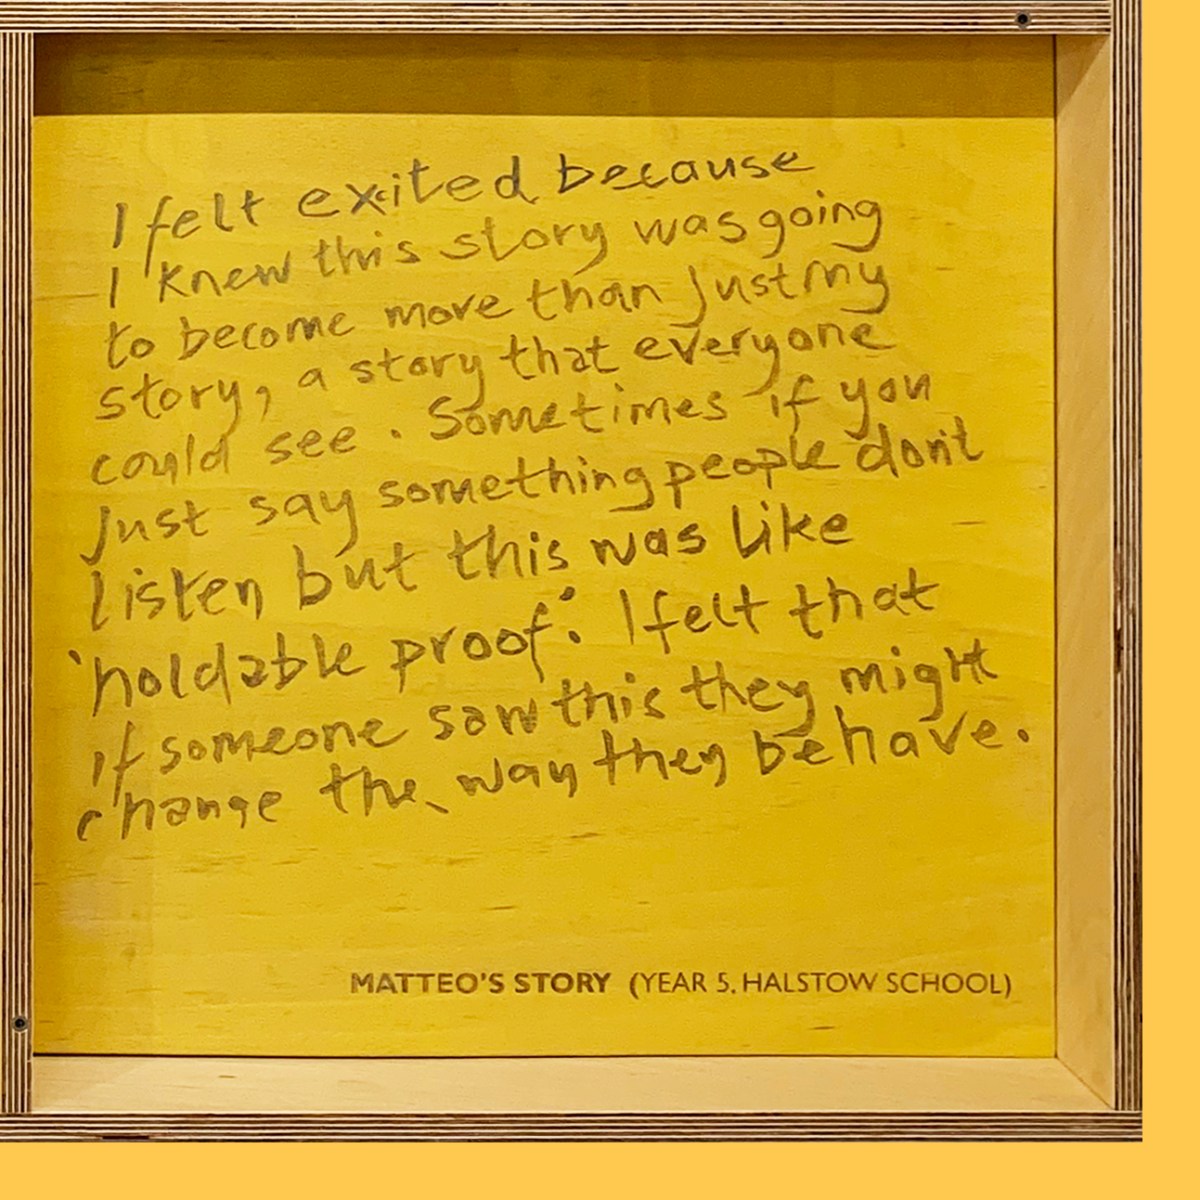 I felt exited because
I knew this story was going
to become more than just my
story, a story that everyone
could see. Sometimes if you
just say something people don't
listen but this was like
'holdable proof'. I felt that
if someone saw this they might
change the way they behave.
MATTEO'S STORY (YEAR 5, HALSTOW SCHOOL)